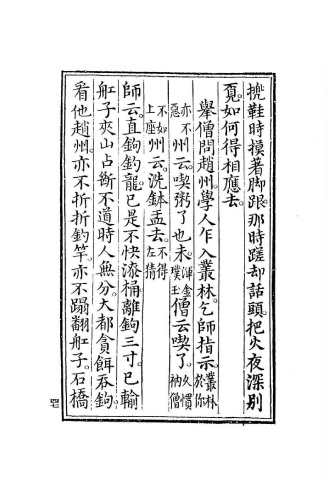 挽鞋時摸著脚跟那時蹉却話頭把火夜深別
覔如何得相應去
舉僧問趙州學人乍入叢林乞師指示叢林於你
亦不惡州云喫粥了也未渾金璞玉僧云喫了久慣衲僧
不如上座州云洗鉢盂去不得左猜
師云直鉤釣龍已是不快漆桶離鉤三寸已輸
舡子夾山占斷不道時人無分大都貪餌吞鉤
看他趙州亦不折折釣竿亦不蹋翻舡子石橋
四七